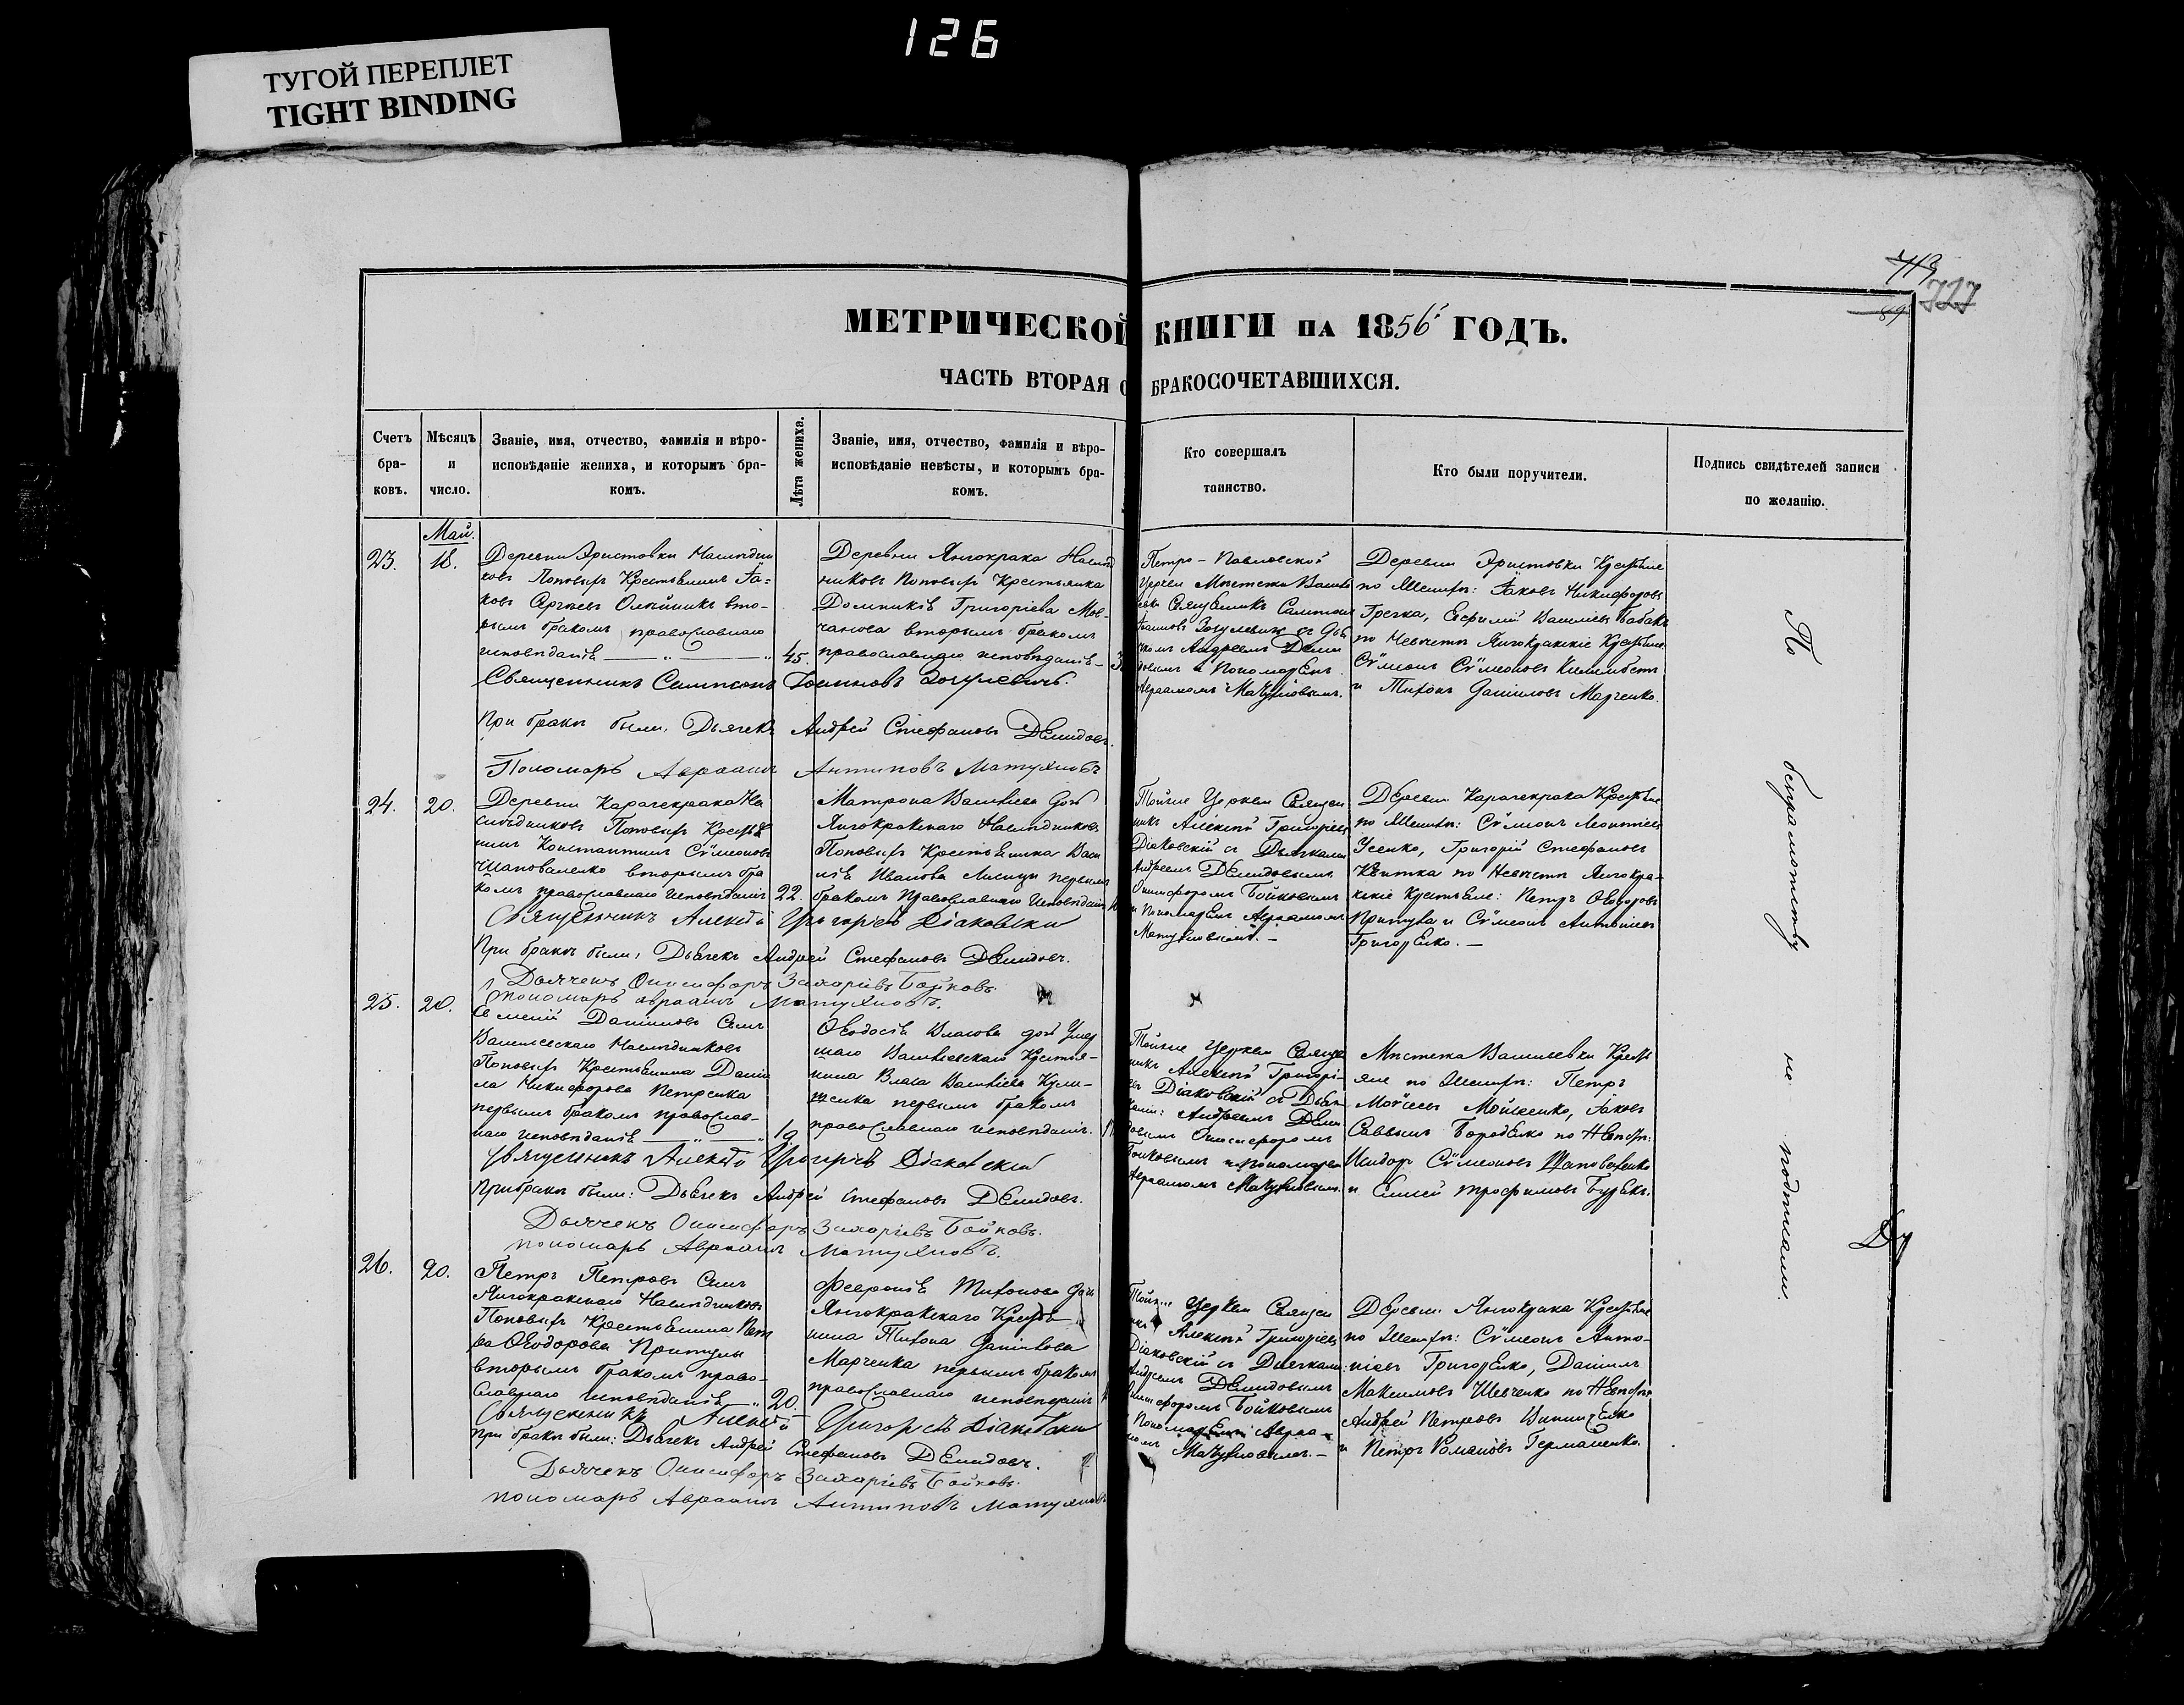 126
ТУГОЙ ПЕРЕПЛЕТ
TIGHT BINDING
727
89
МЕТРИЧЕСКОЙ КНИГИ НА 1856й ГОДЪ.
ЧАСТЬ ВТОРАЯ О БРАКОСОЧЕТАВШИХСЯ.
Счетъ бра-ковъ.
Мѣсяцъ и число.
Званіе, имя, отчество, фамилія и вѣро-
исповѣданіе жениха, и которымъ бра-
комъ.
Лѣта жениха.
Званіе, имя, отчество, фамилія и вѣро-
исповѣданіе невѣсты, и которымъ бра-
комъ.
Кто совершалъ
таинство.
Кто были поручители.
Подпись свидѣтелей записи
по желанію.
Май.
23.
18.
Деревни Эристовки Наслѣдни
ковъ Поповыхъ Крестьянинъ Іа=
ковъ Сергѣевъ Олѣйникъ вто-
рымъ бракомъ православнаго
исповѣданія
45.
Деревни Янчокрака Наслѣд
никовъ Поповыхъ Крестьянка
Домникія Григоріева Мов-
чанова вторымъ бракомъ
православнаго исповѣданія
Петро-Павловской
Церкви Мѣстечка Василь
евки Священникъ Сампсонъ
Іоанновъ Зосулевичъ съ Дья
комъ Андреемъ Деми
довымъ и Пономаремъ
Авраамомъ Матухновымъ.
Деревни Эристовки Крестьяне
по Женихѣ: Іаковъ Никифоровъ
Гречка, Ефимій Василіевъ Бабакъ
по Невѣстѣ Янчокракскіе Крестьяне
Сѵмеонъ Сѵмеоновъ
и Тихонъ Даниловъ Марченко.
Священникъ Сампсонъ Іоанновъ Зосулевичъ.
При бракѣ были: Дьячекъ Андрей Стефановъ Демидовъ.
Пономарь Авраамъ Антиповъ Матухновъ
24.
20.
Деревни Карачекрака На
слѣдниковъ Поповыхъ Крестья
нинъ Константинъ Сѵмеоновъ
Шаповаленко вторымъ бра
комъ православнаго исповѣданія
22.
Матрона Василіева дочь
Янчокракскаго Наслѣдниковъ
Поповыхъ Крестьянина Васи
лія Иванова Лисицы первымъ
бракомъ Православнаго Исповѣданія
Тойже Церкви Священ
никъ Алексій Григоріевъ
Діаковскій съ Дьячками
Андреемъ Демидовымъ
Онисифоромъ Бойковымъ
и Пономаремъ Авраамомъ
Матухновымъ.-
Деревни Карачекрака Крестьяне
по Женихѣ: Сѵмеонъ Леонтіевъ
Усенко, Григорій Стефановъ
Квитка по Невѣстѣ Янчокра-
кскіе Крестьяне: Петръ Ѳеодоровъ
Притула и Сѵмеонъ Антоніевъ
Григоренко.-
Священникъ Алексій Григоріевъ Діаковскій
При бракѣ были: Дьячекъ Андрей Стефановъ Демидовъ.
Дьячекъ Онисифоръ Захаріевъ Бойковъ.
пономарь Авраамъ Матухновъ.
25.
20.
Даниловъ Сынъ
Васильевскаго Наслѣдниковъ
Поповыхъ Крестьянина Дани
ла Никифорова Петренка
первымъ бракомъ православ-
наго исповѣданія
19.
Ѳеодосія Власова дочь Умер
шаго Васильевскаго Крестья-
нина Власа Василіева Кули-
первымъ бракомъ
православнаго исповѣданія.
Тойже Церкви Священ
никъ Алексій Григорі-
евъ Діаковскій съ Дьяч
ками: Андреемъ Деми
довымъ Онисифоромъ
Бойковымъ и пономарем
Авраамомъ Матухновымъ.
Мѣстечка Васильевки Кресть
яне по Женихѣ: Петръ
Моѵсеевъ Мойсеенко, Іаковъ
Саввинъ Бороденко по Невѣстѣ:
Исидоръ Сѵмеоновъ Шаповаленко
и Елисей Трофимовъ Бурякъ.
Священникъ Алексій Григоріевъ Діаковскій
При бракѣ были: Дьячекъ Андрей Стефановъ Демидовъ.
Дьячекъ Онисифоръ Захаріевъ Бойковъ.
пономарь Авраамъ Матухновъ.
26.
20.
Петръ Петровъ Сынъ
Янчокракскаго Наслѣдниковъ
Поповыхъ Крестьянина Пет
ра Ѳеодорова Притулы
вторымъ бракомъ право-
славнаго исповѣданія
20.
Февронія Тихонова дочь
Янчокракскаго Крестья
нина Тихона Данилова
Марченка первымъ бракомъ
православнаго исповѣданія
Тойже Церкви Священ
никъ Алексій Григоріевъ
Діаковскій съ Дьячками:
Андреемъ Демидовымъ
Онисифоромъ Бойковымъ
Пономаремъ Авраа-
момъ Матухновымъ.-
Деревни Янчокрака Крестьяне
по Женихѣ: Сѵмеонъ Анто-
ніевъ Григоренко, Даніилъ
Максимовъ Шевченко по Невѣстѣ
Андрей Петровъ Винниченко
и Петръ Романовъ Германенко.
Священникъ Алексій Григоріевъ Діаковскій
При бракѣ были: Дьячекъ Андрей Стефановъ Демидовъ.
Дьячекъ Онисифоръ Захаріевъ Бойковъ.
пономарь Авраамъ Антиповъ Матухновъ
По безграмотству не подписали.